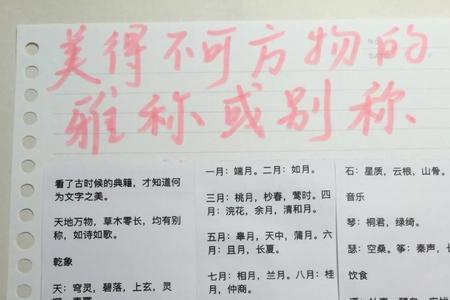 美得不可方物的
雅称或别称
看了古时候的典籍，才知道何
为文字之美。
天地万物，草木零长，均有别
称，如诗如歌。
乾象
天：穹灵，碧落，上玄，灵
一月：端月。二月：如月。
三月：桃月，杪春，莺时。四
月：浣花，余月，清和月。
五月：皋月，天中，蒲月。六
月：且月，长夏。
七月：相月，兰月。八月：桂
月，仲商。
石：星质，云根，山骨。
音乐
琴：桐君，绿绮。
瑟：空桑。筝：秦声，
饮食